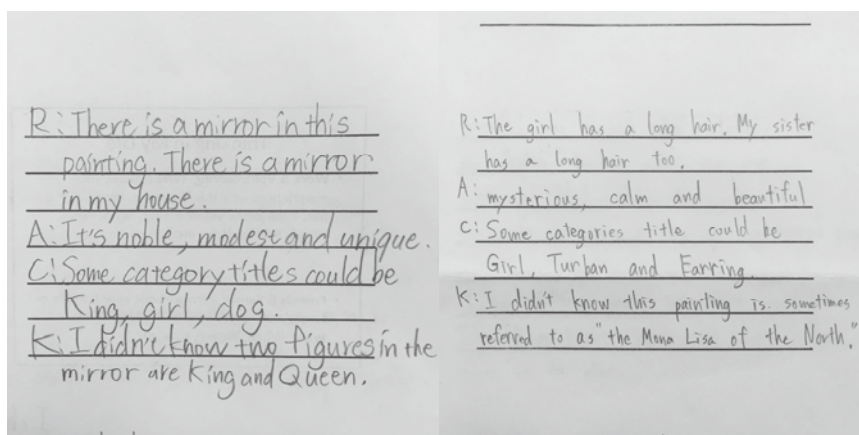 R: There is a mirror in this
painting. There is a mirror
in my house.
A: It's noble, modest and unique.
C: Some category titles could be
King, girl, dog.
K: I didn't know two figures in the
mirror are King and Queen.
R: The girl has a long hair. My sister
has a long hair too.
A: mysterious, calm and beautiful
C: Some categories title could be
Girl, Turban and Earring.
K: I didn't know this painting is sometimes
referred to as "the Mona Lisa of the North."